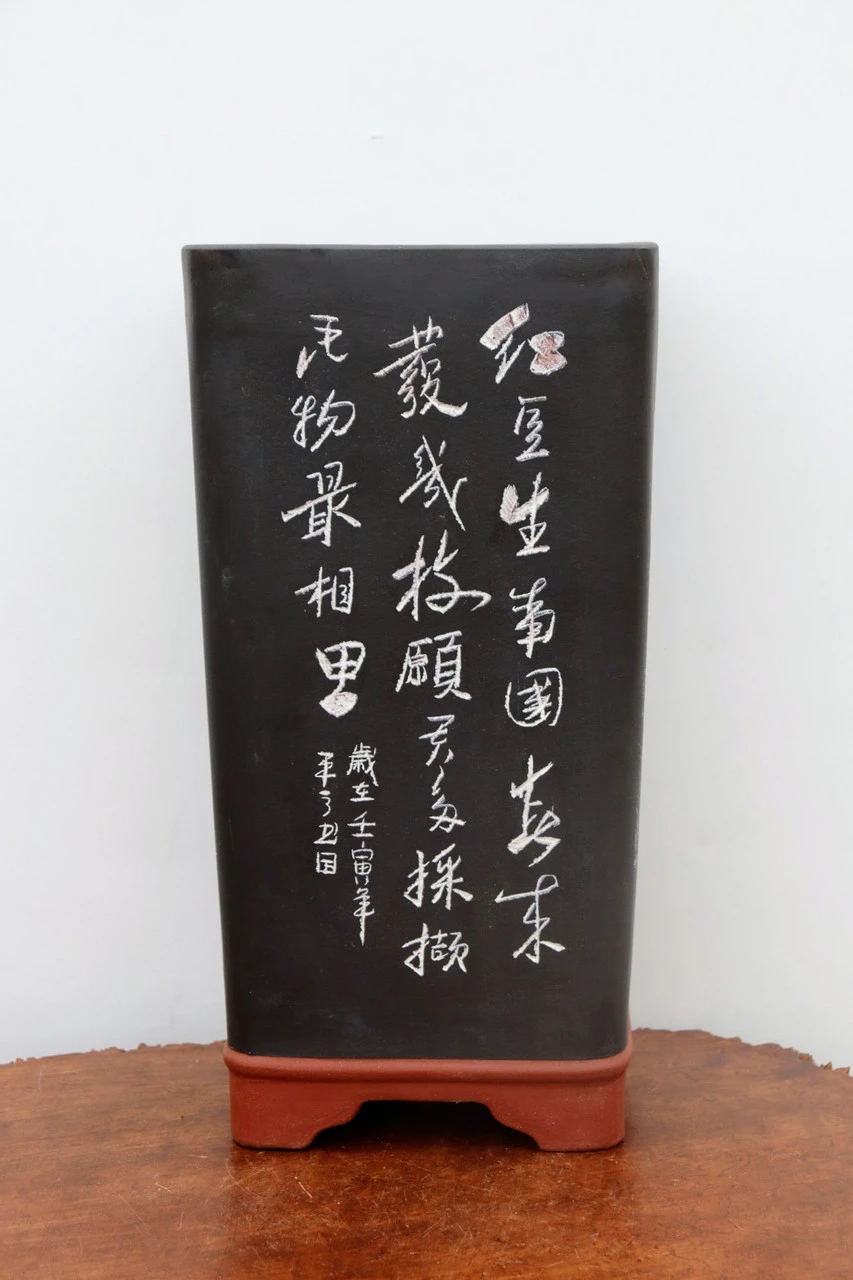 红豆生南國春来
發幾枝願君多採擷
此物最相思
歲在壬寅年